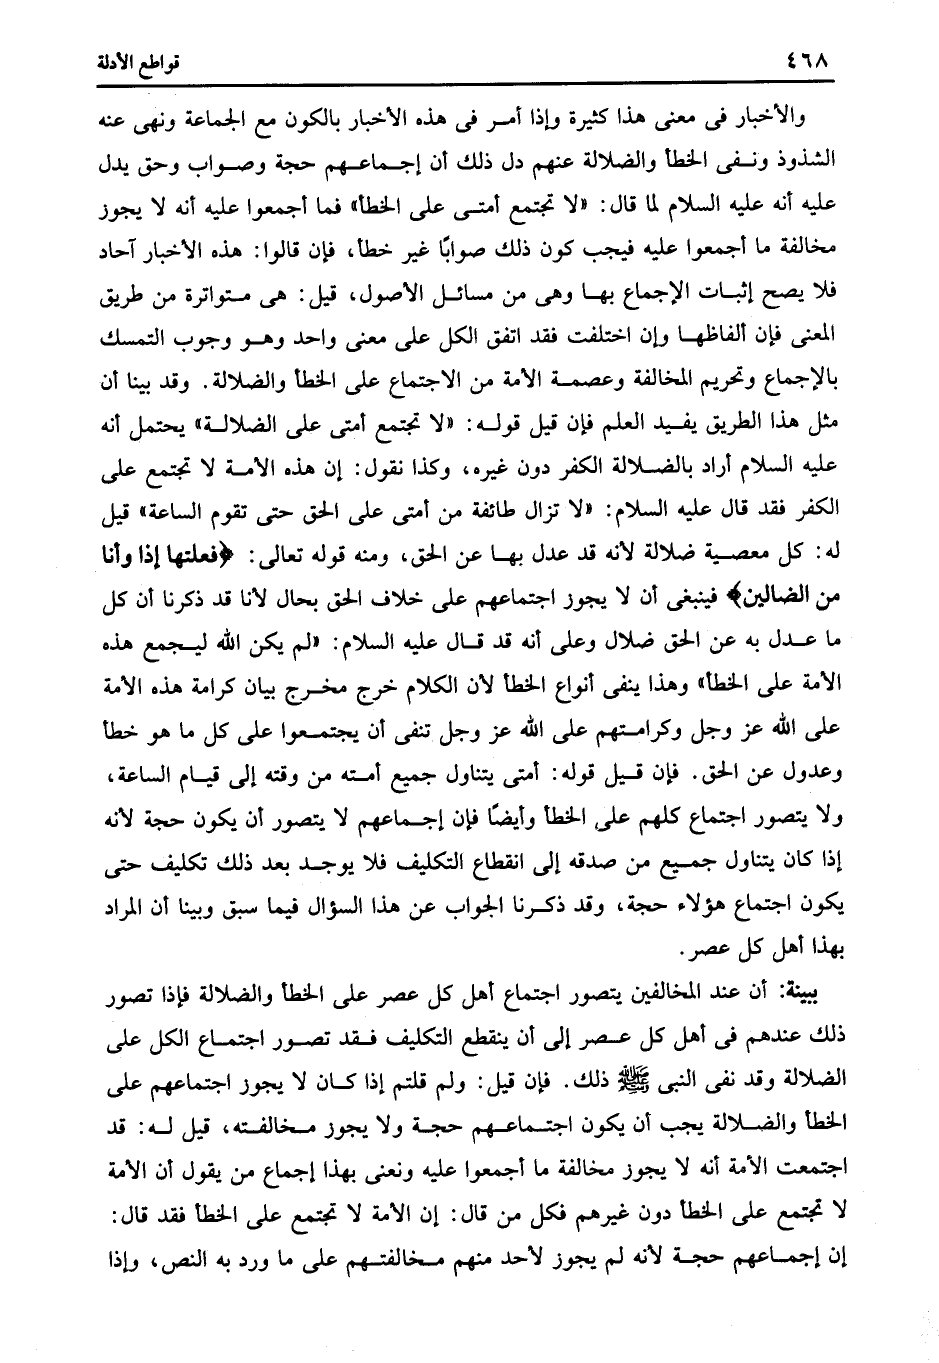 ٤٦٨ قواطع الأدلة
والأخبار فى معنى هذا كثيرة وإذا أمر فى هذه الأخبار بالكون مع الجماعة ونهى عنه
الشذوذ ونفى الخطأ والضلالة عنهم دل ذلك أن إجماعهم حجة وصواب وحق يدل
عليه أنه عليه السلام لما قال: «لا تجتمع أمتى على الخطأ» فما أجمعوا عليه أنه لا يجوز
مخالفة ما أجمعوا عليه فيجب كون ذلك صوابًا غير خطأ، فإن قالوا: هذه الأخبار آحاد
فلا يصح إثبات الإجماع بها وهى من مسائل الأصول، قيل: هى متواترة من طريق
المعنى فإن ألفاظها وإن اختلفت فقد اتفق الكل على معنى واحد وهو وجوب التمسك
بالإجماع وتحريم المخالفة وعصمة الأمة من الاجتماع على الخطأ والضلالة. وقد بينا أن
مثل هذا الطريق يفيد العلم فإن قيل قوله: «لا تجتمع أمتى على الضلالة» يحتمل أنه
عليه السلام أراد بالضلالة الكفر دون غيره، وكذا نقول: إن هذه الأمة لا تجتمع على
الكفر فقد قال عليه السلام: «لا تزال طائفة من أمتى على الحق حتى تقوم الساعة» قيل
له: كل معصية ضلالة لأنه قد عدل بها عن الحق، ومنه قوله تعالى: ﴿فعلتها إذا وأنا
من الضالين﴾ فينبغى أن لا يجوز اجتماعهم على خلاف الحق بحال لأنا قد ذكرنا أن كل
ما عدل به عن الحق ضلال وعلى أنه قد قال عليه السلام: «لم يكن الله ليجمع هذه
الأمة على الخطأ» وهذا ينفى أنواع الخطأ لأن الكلام خرج مخرج بيان كرامة هذه الأمة
على الله عز وجل وكرامتهم على الله عز وجل تنفى أن يجتمعوا على كل ما هو خطأ
وعدول عن الحق. فإن قيل قوله: أمتى يتناول جميع أمته من وقته إلى قيام الساعة،
ولا يتصور اجتماع كلهم على الخطأ وأيضًا فإن إجماعهم لا يتصور أن يكون حجة لأنه
إذا كان يتناول جميع من صدقه إلى انقطاع التكليف فلا يوجد بعد ذلك تكليف حتى
يكون اجتماع هؤلاء حجة، وقد ذكرنا الجواب عن هذا السؤال فيما سبق وبينا أن المراد
بهذا أهل كل عصر.
يبينة: أن عند المخالفين يتصور اجتماع أهل كل عصر على الخطأ والضلالة فإذا تصور
ذلك عندهم فى أهل كل عصر إلى أن ينقطع التكليف فقد تصور اجتماع الكل على
الضلالة وقد نفى النبى ﷺ ذلك. فإن قيل: ولم قلتم إذا كان لا يجوز اجتماعهم على
الخطأ والضلالة يجب أن يكون اجتماعهم حجة ولا يجوز مخالفته، قيل له: قد
اجتمعت الأمة أنه لا يجوز مخالفة ما أجمعوا عليه ونعنى بهذا إجماع من يقول أن الأمة
لا تجتمع على الخطأ دون غيرهم فكل من قال: إن الأمة لا تجتمع على الخطأ فقد قال:
إن إجماعهم حجة لأنه لم يجوز لأحد منهم مخالفتهم على ما ورد به النص، وإذا